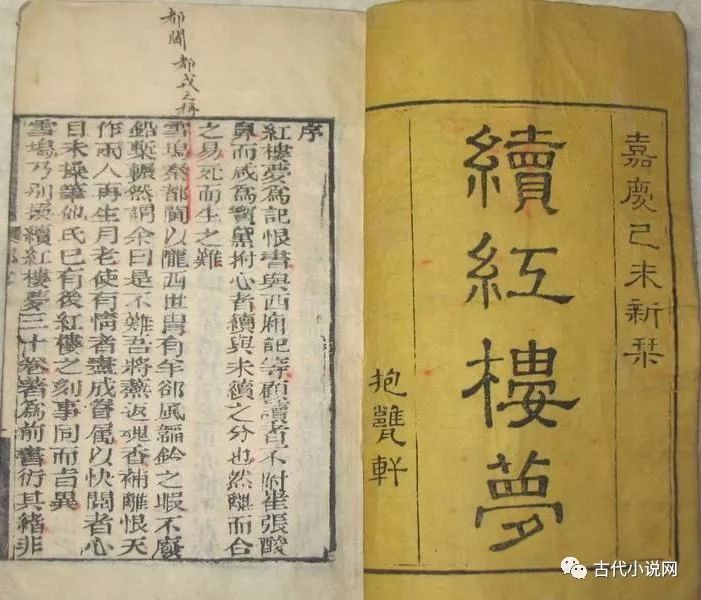 嘉慶己未新栞
續紅樓夢
抱甕軒
都閫 都戎之稱
序
紅樓夢為記恨書與西廂記等顧讀者不附崔張酸
鼻而咸為寶黛拊心者續與未續之分也然離而合
之易死而生之難
雪塢秦都閫以隴西世胄有羊郤風韜鈐之暇不廢
鉛槧囅然謂余曰是不難吾將爇返魂香補離恨天
作兩人再生月老使有情者盡成眷屬以快閱者心
目未操筆他氏已有後紅樓之刻事同而旨異
雪塢乃別撰續紅樓夢三十卷著為前書衍其緒非
古代小说网